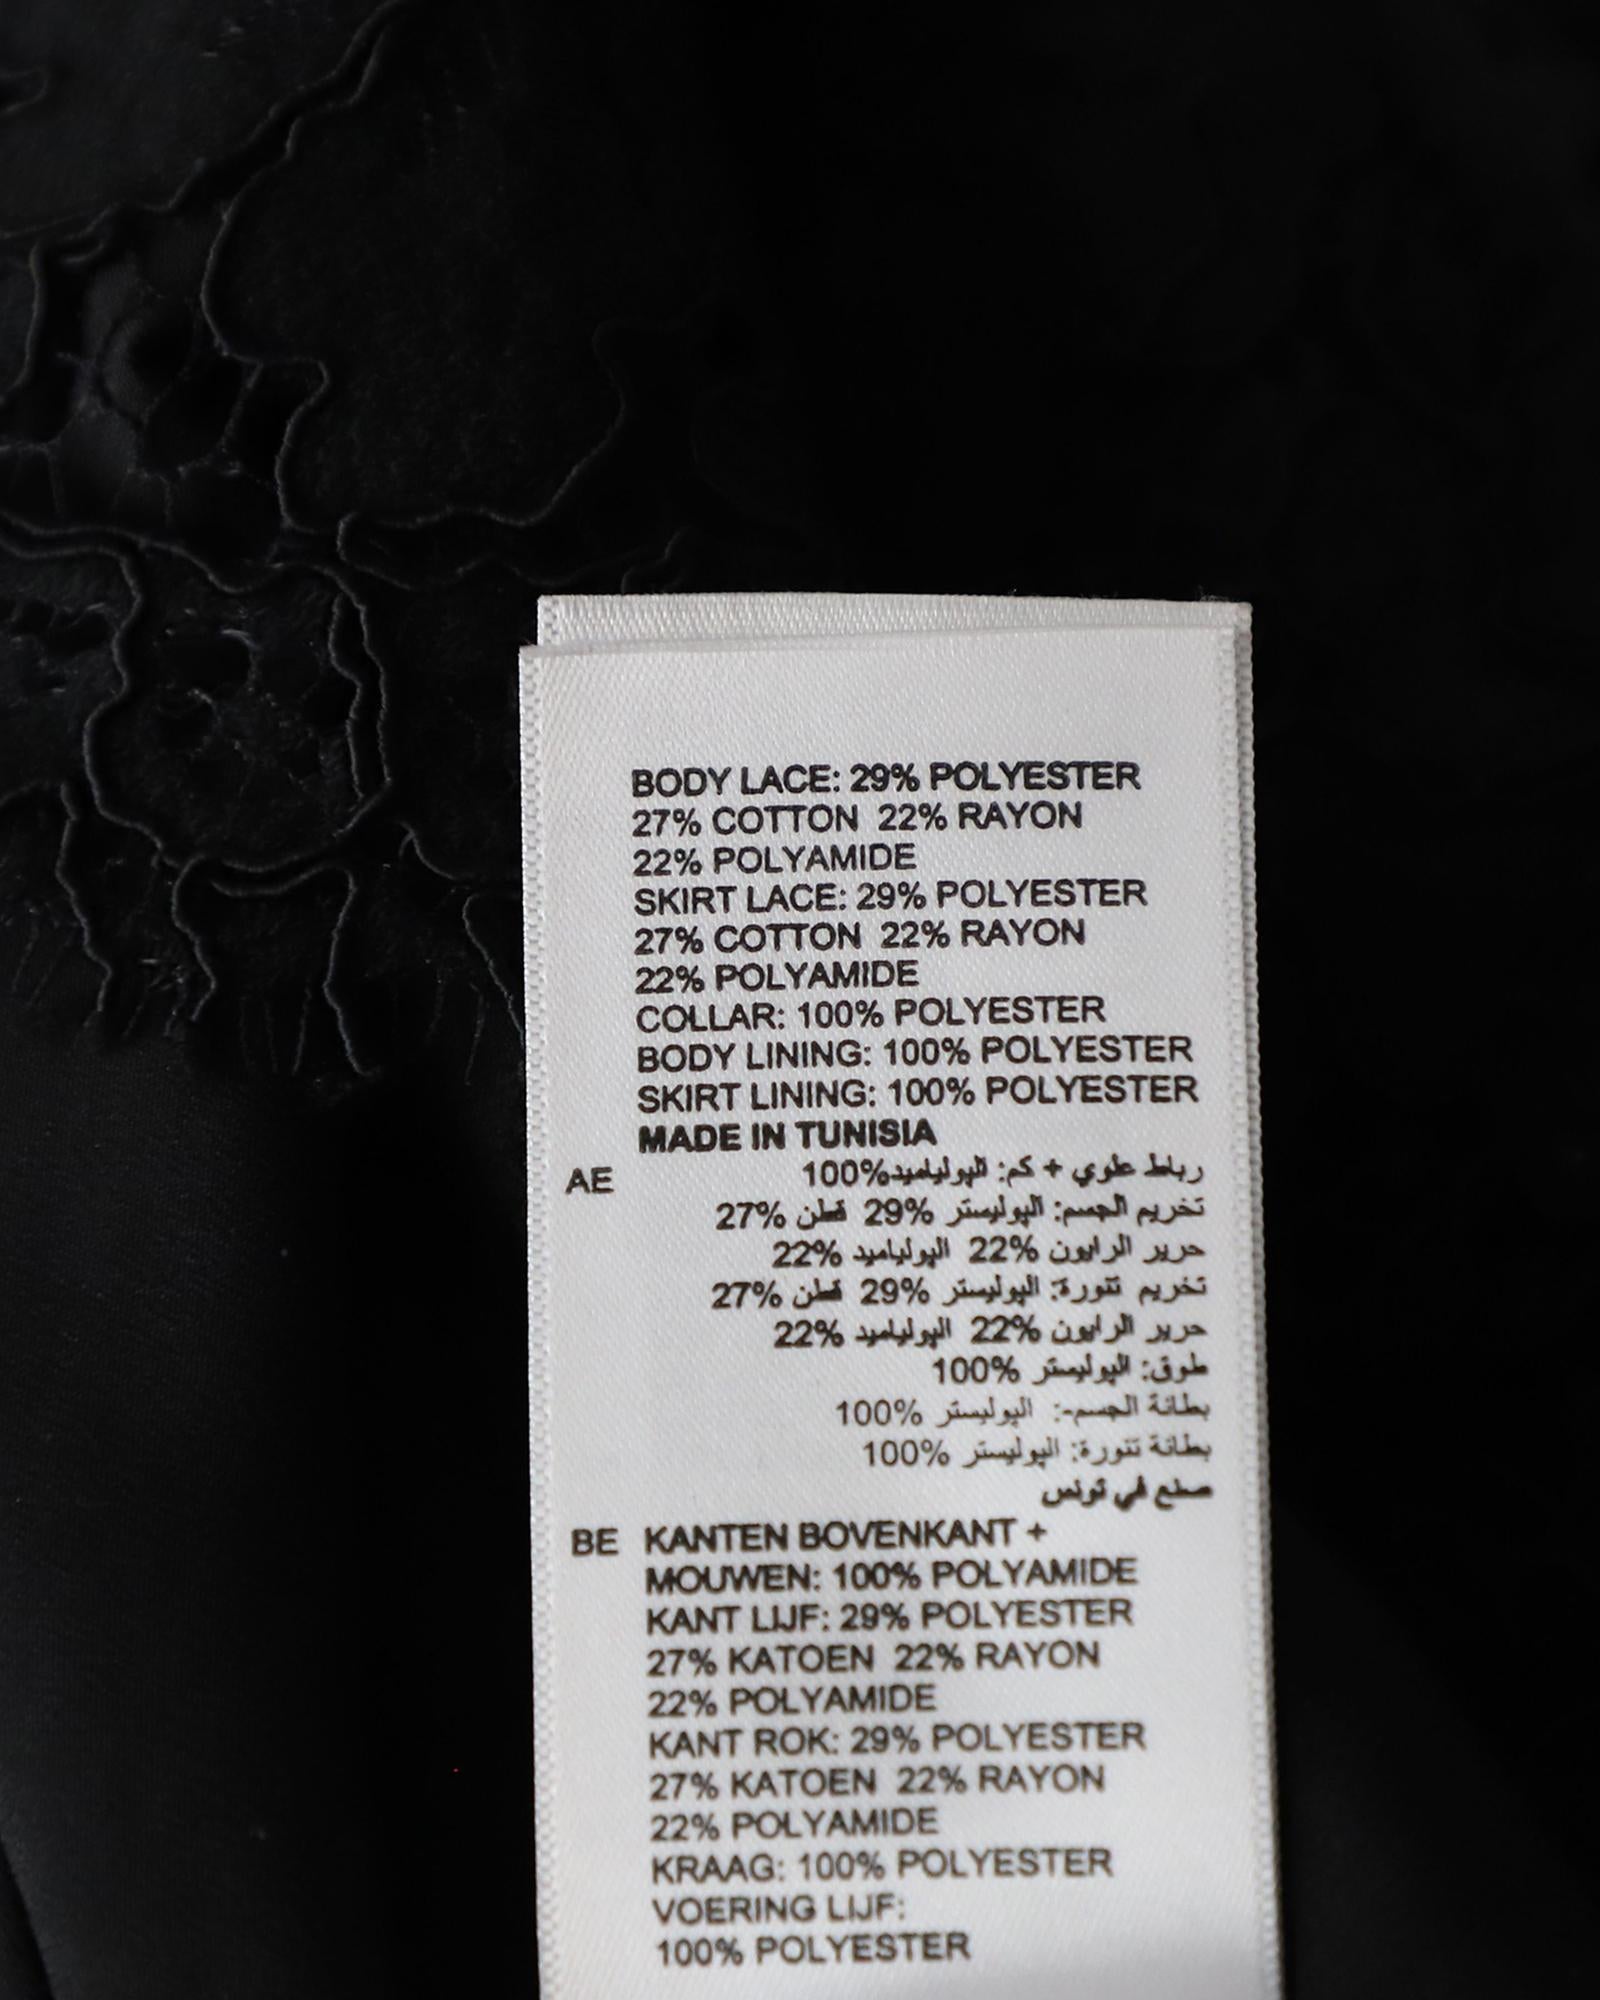 BODY LACE: 29% POLYESTER
27% COTTON 22% RAYON
22% POLYAMIDE
SKIRT LACE: 29% POLYESTER
27% COTTON 22% RAYON
22% POLYAMIDE
COLLAR: 100% POLYESTER
BODY LINING: 100% POLYESTER
SKIRT LINING: 100% POLYESTER
MADE IN TUNISIA
AE رباط علوي + كم: البولياميد%100
تخريم الجسم: البوليستر %29 قطن %27
حرير الرايون %22 البولياميد %22
تخريم تنورة: البوليستر %29 قطن %27
حرير الرايون %22 البولياميد %22
طوق: البوليستر %100
بطانة الجسم-: البوليستر %100
بطانة تنورة: البوليستر %100
صنع في تونس
BE KANTEN BOVENKANT +
MOUWEN: 100% POLYAMIDE
KANT LIJF: 29% POLYESTER
27% KATOEN 22% RAYON
22% POLYAMIDE
KANT ROK: 29% POLYESTER
27% KATOEN 22% RAYON
22% POLYAMIDE
KRAAG: 100% POLYESTER
VOERING LIJF:
100% POLYESTER